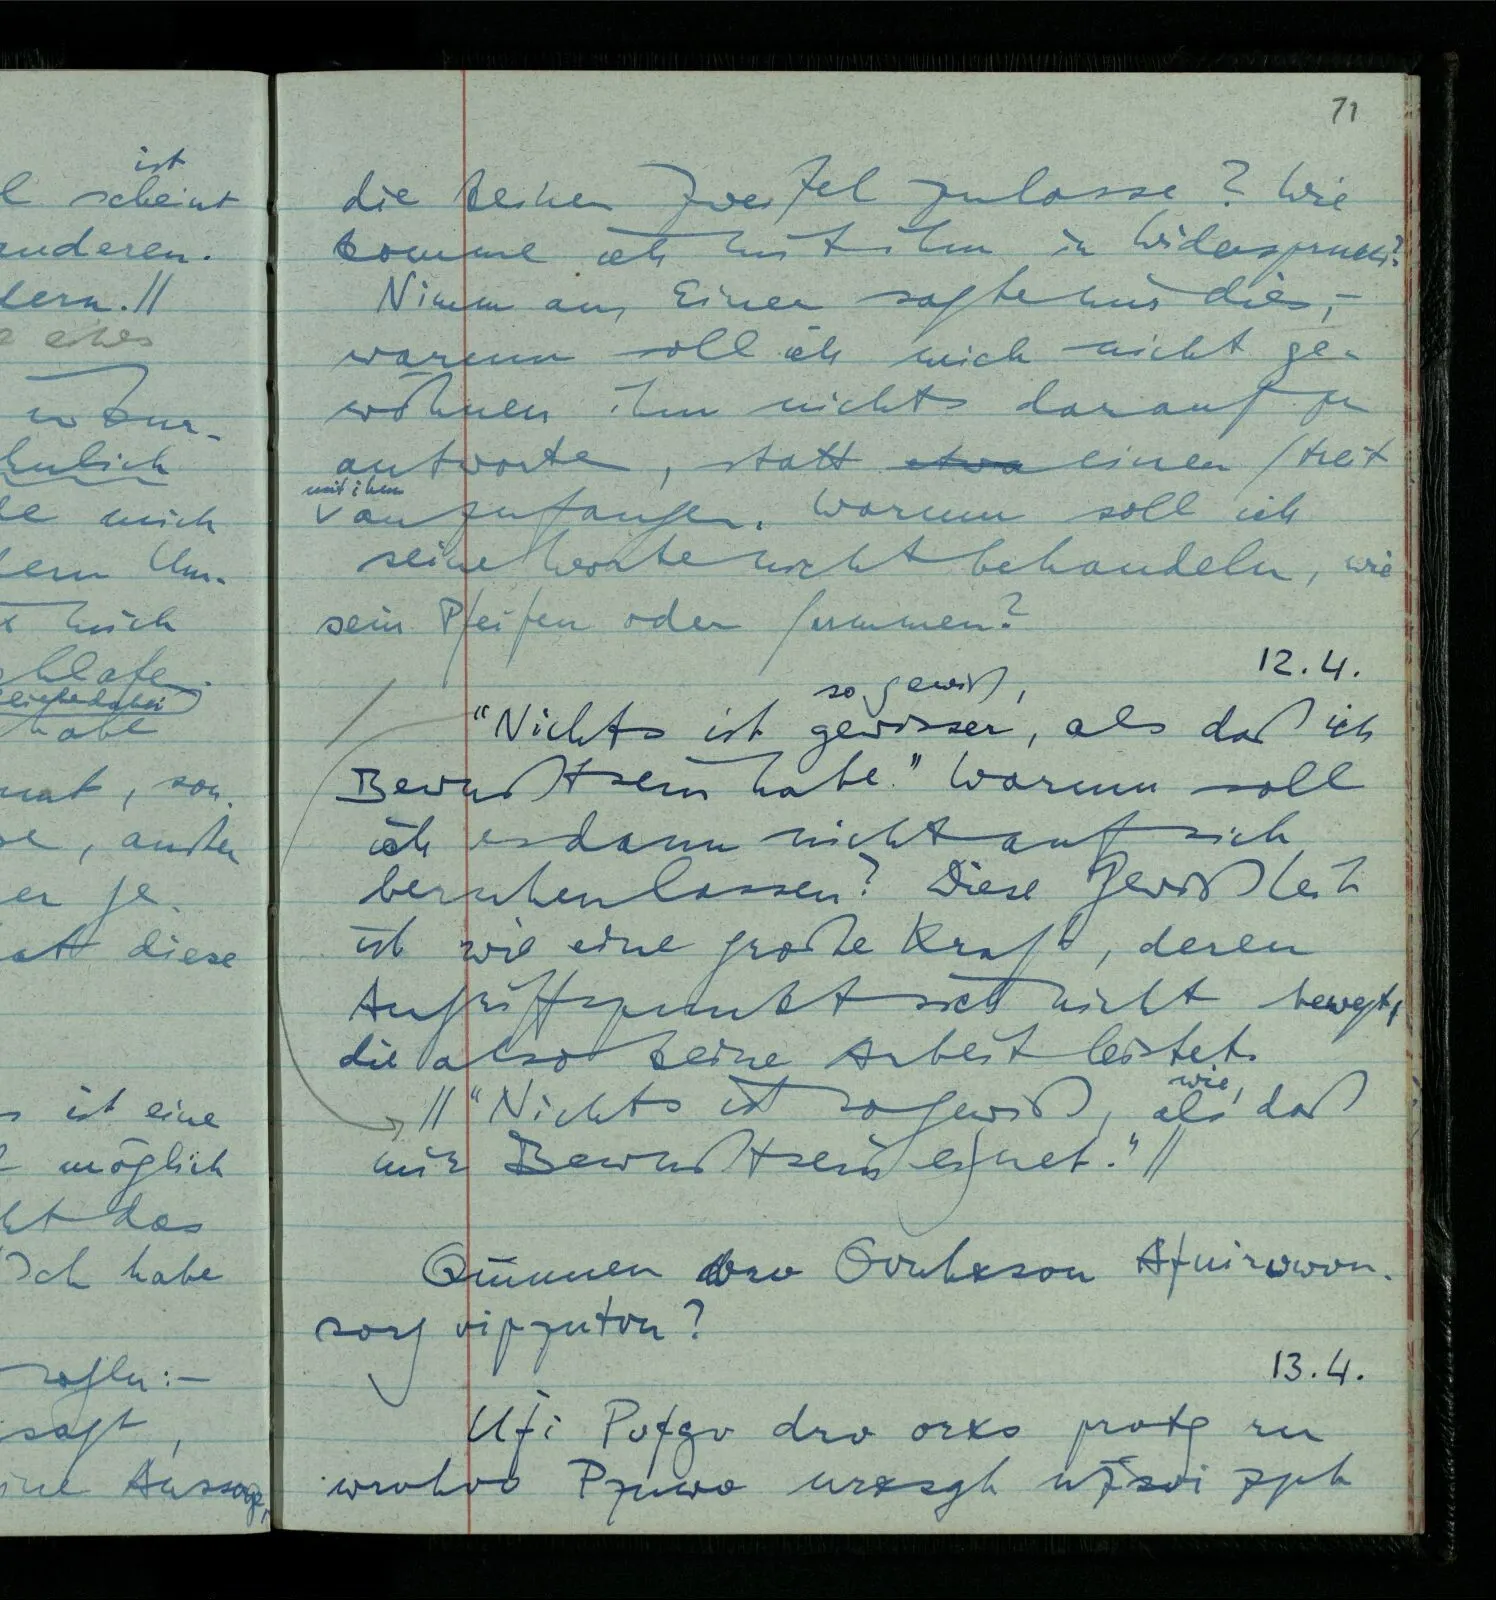 ist
l scheint
anderen.
dern.//
hnlich
de mich
dern Um-
mich
habe
mat, son.
se, außer
er je.
att diese
s ist eine
möglich
ht das
Ich habe
sagen:—
sagt,
ine Aussage,
71
die keinen Zweifel zulasse? Wie
komme ich mit ihm in Widerspruch?
Nimm an, Einer sagte mir dies,—
warum soll ich mich nicht ge-
wöhnen ihm nichts darauf zu
antworten, statt etwa einen Streit
mit ihm
anzufangen. Warum soll ich
seine Worte nicht behandeln, wie
sein Pfeifen oder Summen?
12.4.
so gewiß,
"Nichts ist gewisser, als daß ich
Bewußtsein habe." Warum soll
ich es dann nicht auf sich
beruhen lassen? Diese Gewißheit
ist wie eine große Kraft, deren
Angriffspunkt sich nicht bewegt,
die also keine Arbeit leistet.
wie,
// "Nichts ist so gewiß, als daß
mir Bewußtsein eignet." //
dro
sorg
13.4.
Ufi Pofgv dro orxs protg ru